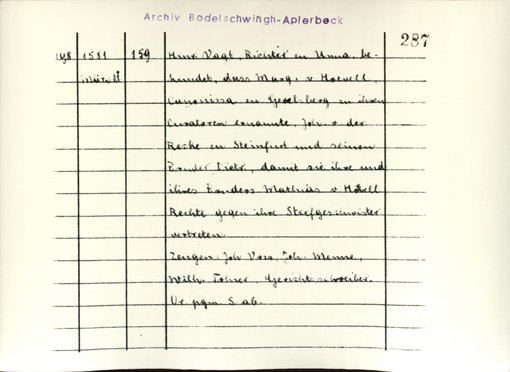 Archiv Bodelschwingh-Aplerbeck
287
198 1581 159 Hinr. Vagt, Richter zu Unna, be-
März 21 kundet, dass Marg. v Hoevell,
Canonissa zu Gevelsberg zu ihren
Curatoren ernannte, Joh. v. der
Recke zu Steinfurt und seinen
Bruder Dietr., damit sie ihre und
ihres Bruders Mathias v Hövell
Rechte gegen ihre Stiefgeschwister
vertreten.
Zeugen: Joh Voss, Joh. Menne,
Wilh. Gerichtsschreiber.
Or. pgm. S ab.